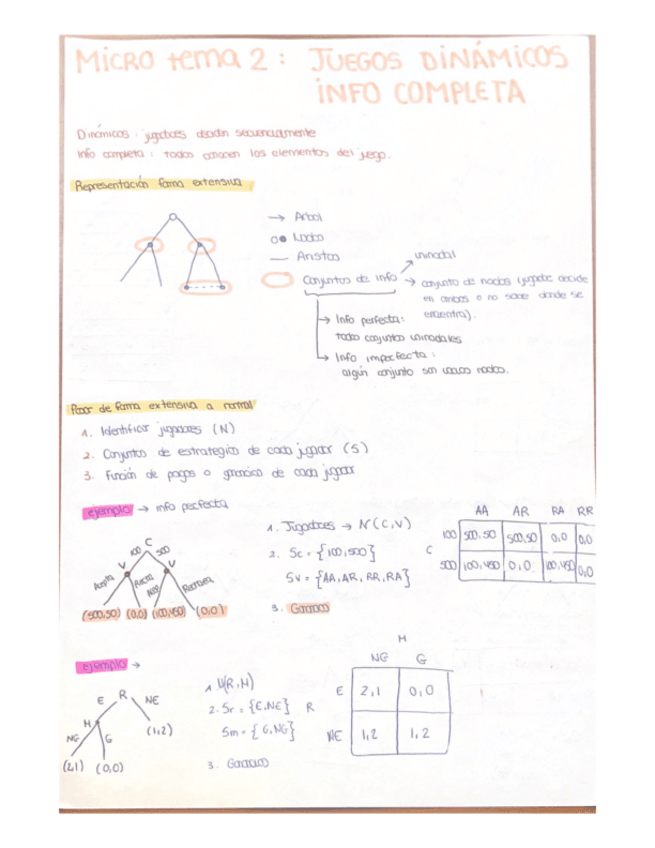 Micro tema 2: JUEGOS DINÁMICOS
INFO COMPLETA
Dinámicos: jugadores deciden secuencialmente
Info completa: todos conocen los elementos del juego.
Representación forma extensiva
→ Árbol
Nodo
— Aristas
Conjuntos de info
→ uninodal
→ conjunto de nodos (jugador decide
en ambos o no sabe donde se
encuentra).
→ Info perfecta:
todos conjuntos uninodales
→ Info imperfecta:
algún conjunto son varios nodos.
Pasar de forma extensiva a normal
1. Identificar jugadores (N)
2. Conjuntos de estrategias de cada jugador (S)
3. Función de pagos o ganancia de cada jugador
ejemplo → info perfecta
C
100 500
V V
Acepta Rechaza Rechaza
(500,50) (0,0) (100,450) (0,0)
1. Jugadores → N(C,V)
2. Sc = {100,500}
Sv = {AA,AR,RR,RA}
3.
AA AR RA RR
C
100 500,50 500,50 0,0 0,0
500 100,450 0,0 100,450 0,0
ejemplo →
R
E NE
M (1,2)
NG G
(2,1) (0,0)
1. N(R,M)
2. Sr = {E,NE}
Sm = {G,NG}
3.
M
NG G
R
E 2,1 0,0
NE 1,2 1,2